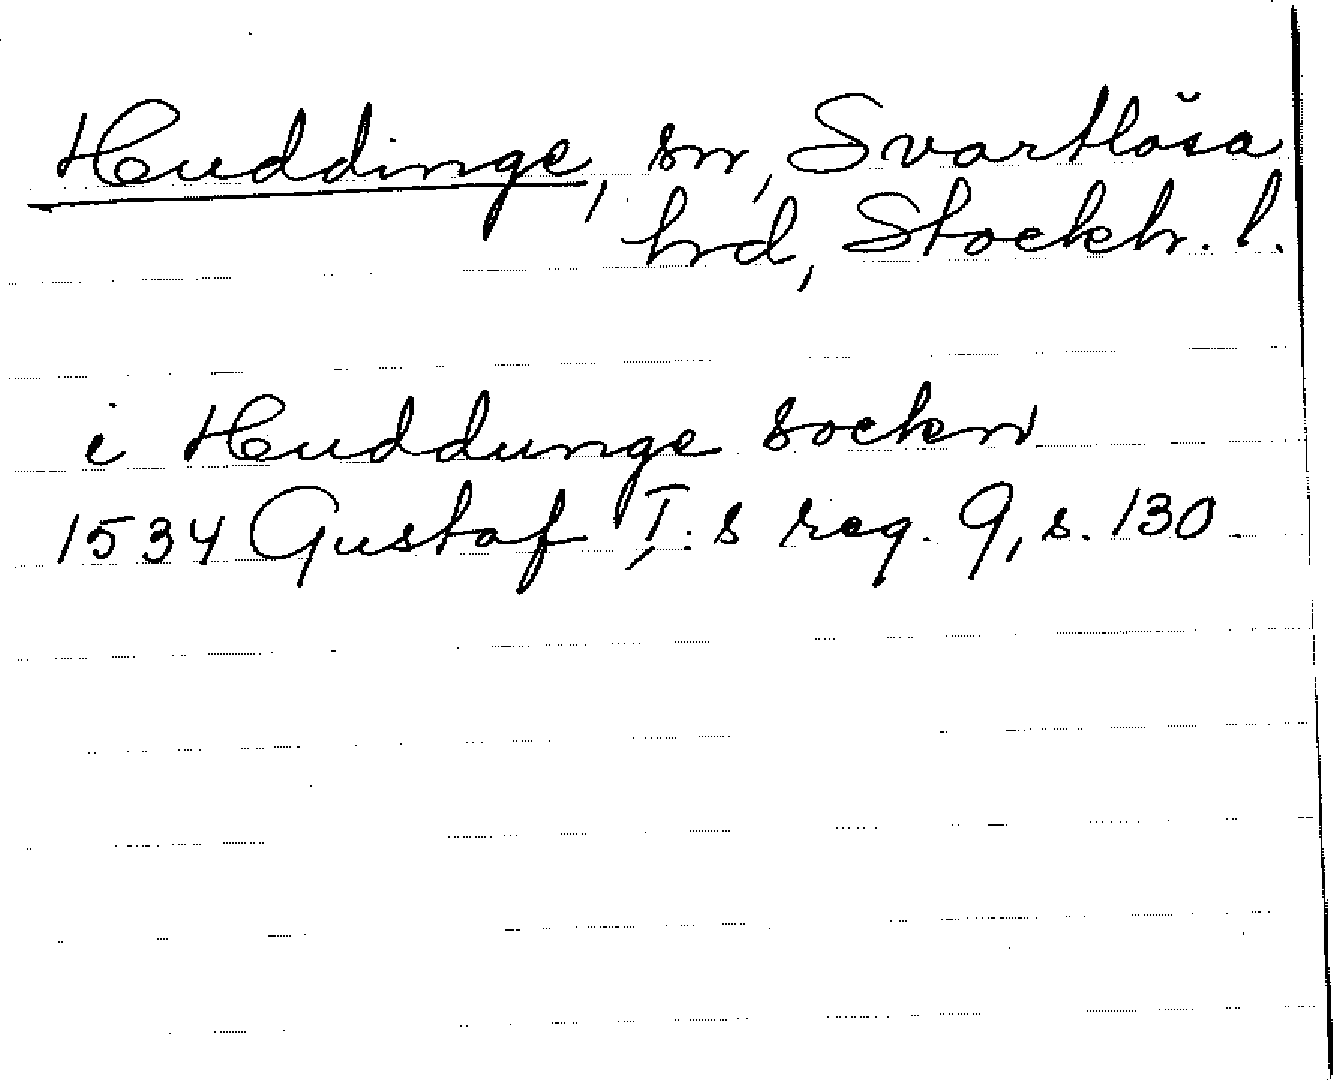 Huddinge, sn, Svartlösa
hrd, Stockh. l.
i Huddunge sockn
1534 Gustaf I:s reg. 9, s. 130.